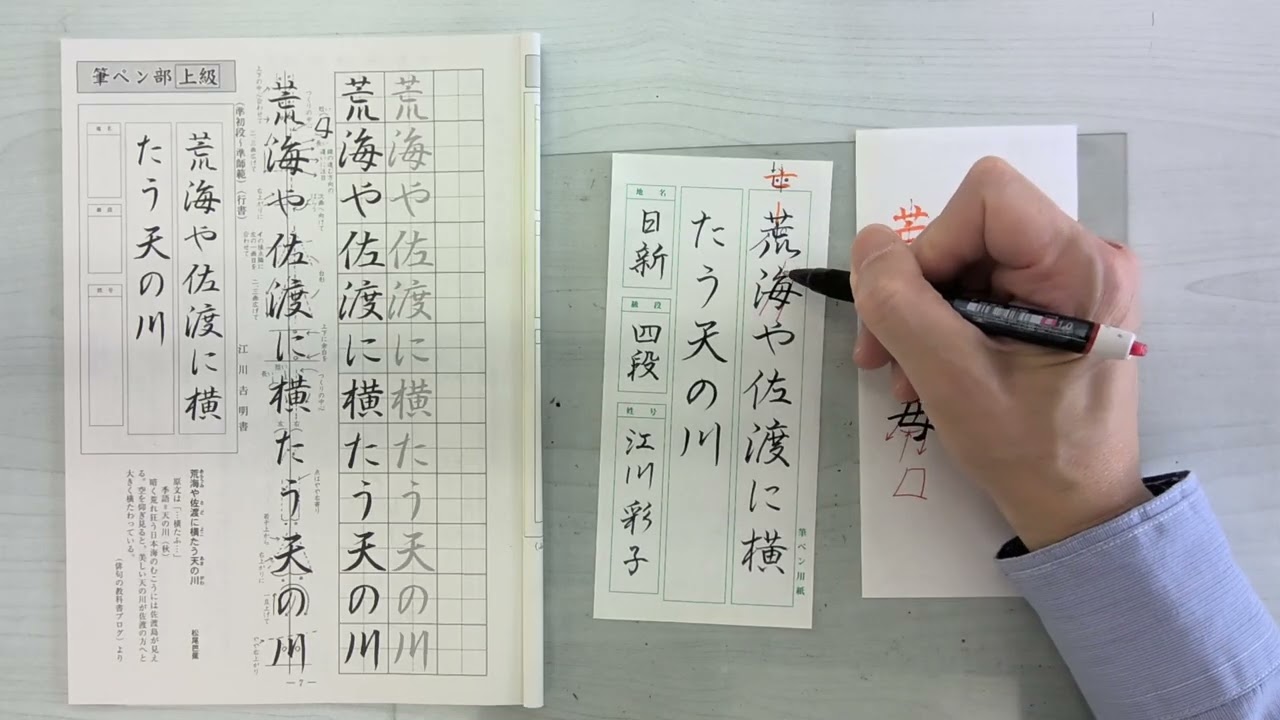 筆ペン部 上級
(準初段～準師範)(行書)
荒海や佐渡に横
たう天の川
地名
級段
姓号
江川吉明書
荒海や佐渡に横たう天の川
荒海や佐渡に横たう天の川
荒海や佐渡に横たう天の川
荒海や佐渡に横たう天の川
松尾芭蕉
原文は「…横たふ…」
季語=天の川(秋)
暗く荒れ狂う日本海のむこうには佐渡島が見え
る。空を仰ぎ見ると、美しい天の川が佐渡の方へと
大きく横たわっている。
(俳句の教科書ブログ)より
7
荒海や佐渡に横
たう天の川
地名
日新
級段
四段
姓号
江川彩子
筆ペン用紙